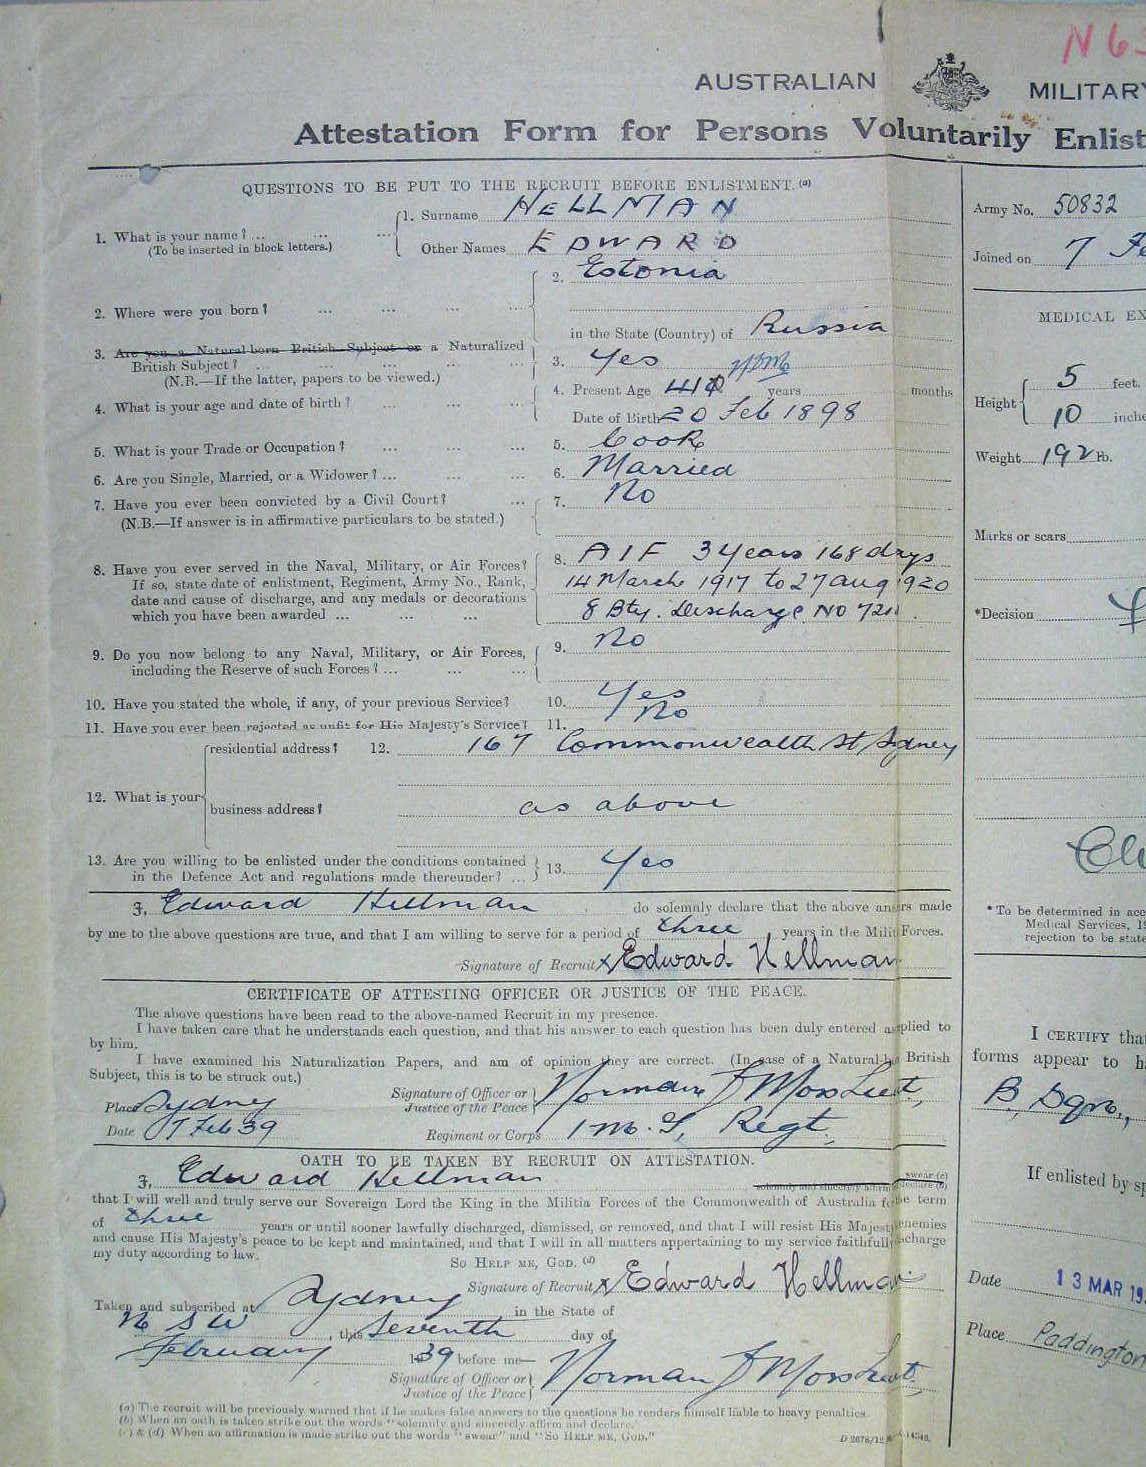 N 63
AUSTRALIAN MILITARY
Attestation Form for Persons Voluntarily Enlist
QUESTIONS TO BE PUT TO THE RECRUIT BEFORE ENLISTMENT.(a)
1. What is your name? ... ... ...
(To be inserted in block letters.)
1. Surname HELLMAN
Other Names EDWARD
2. Where were you born? ... ... ...
2. Estonia
in the State (Country) of Russia
3. Are you a Natural-born British Subject or a Naturalized
British Subject? ... ... ... ...
(N.B.—If the latter, papers to be viewed.)
3. Yes
4. What is your age and date of birth? ... ... ...
4. Present Age 41 years months
Date of Birth 20 Feb 1898
5. What is your Trade or Occupation? ... ... ...
5. Cook
6. Are you Single, Married, or a Widower? ... ... ...
6. Married
7. Have you ever been convicted by a Civil Court? ...
(N.B.—If answer is in affirmative particulars to be stated.)
7. No
8. Have you ever served in the Naval, Military, or Air Forces?
If so, state date of enlistment, Regiment, Army No., Rank,
date and cause of discharge, and any medals or decorations
which you have been awarded ... ... ...
8. AIF 3 Years 168 days
14 March 1917 to 27 Aug 1920
8 Bty. Discharge No 721
9. Do you now belong to any Naval, Military, or Air Forces,
including the Reserve of such Forces? ... ... ...
9. No
10. Have you stated the whole, if any, of your previous Service?
10. Yes
11. Have you ever been rejected as unfit for His Majesty's Service?
11. No
12. What is your
residential address? 12. 167 Commonwealth St Sydney
business address? as above
13. Are you willing to be enlisted under the conditions contained
in the Defence Act and regulations made thereunder? ...
13. Yes
I, Edward Hellman do solemnly declare that the above ans rs made
by me to the above questions are true, and that I am willing to serve for a period of three years in the Milit Forces.
Signature of Recruit x Edward Hellman
CERTIFICATE OF ATTESTING OFFICER OR JUSTICE OF THE PEACE.
The above questions have been read to the above-named Recruit in my presence.
I have taken care that he understands each question, and that his answer to each question has been duly entered a plied to
by him.
I have examined his Naturalization Papers, and am of opinion they are correct. (In case of a Natural-b British
Subject, this is to be struck out.)
Place Sydney
Date 07 Feb 39
Signature of Officer or
Justice of the Peace
Norman Moss Lieut,
Regiment or Corps 1 M. G. Regt.
OATH TO BE TAKEN BY RECRUIT ON ATTESTATION.
I, Edward Hellman swear (c)
solemnly and sincerely affirm declare (b)
that I will well and truly serve our Sovereign Lord the King in the Militia Forces of the Commonwealth of Australia f e term
of three years or until sooner lawfully discharged, dismissed, or removed, and that I will resist His Majest enemies
and cause His Majesty's peace to be kept and maintained, and that I will in all matters appertaining to my service faithfull scharge
my duty according to law.
SO HELP ME, GOD. (d)
Signature of Recruit x Edward Hellman
Taken and subscribed at Sydney in the State of
N S W, this Seventh day of
February 1939 before me—
Signature of Officer or
Justice of the Peace
Norman Moss Lieut.
(a) The recruit will be previously warned that if he makes false answers to the questions he renders himself liable to heavy penalties.
(b) When an oath is taken strike out the words "solemnly and sincerely affirm and declare."
(c) & (d) When an affirmation is made strike out the words "swear" and "SO HELP ME, GOD."
Army No. 50832
Joined on 7 Fe
MEDICAL EX
Height 5 feet.
10 inche
Weight 192 lb.
Marks or scars
*Decision
* To be determined in acc
Medical Services, 19
rejection to be state
I CERTIFY that
forms appear to h
B. Sqn.,
If enlisted by sp
Date 13 MAR 19
Place Paddington